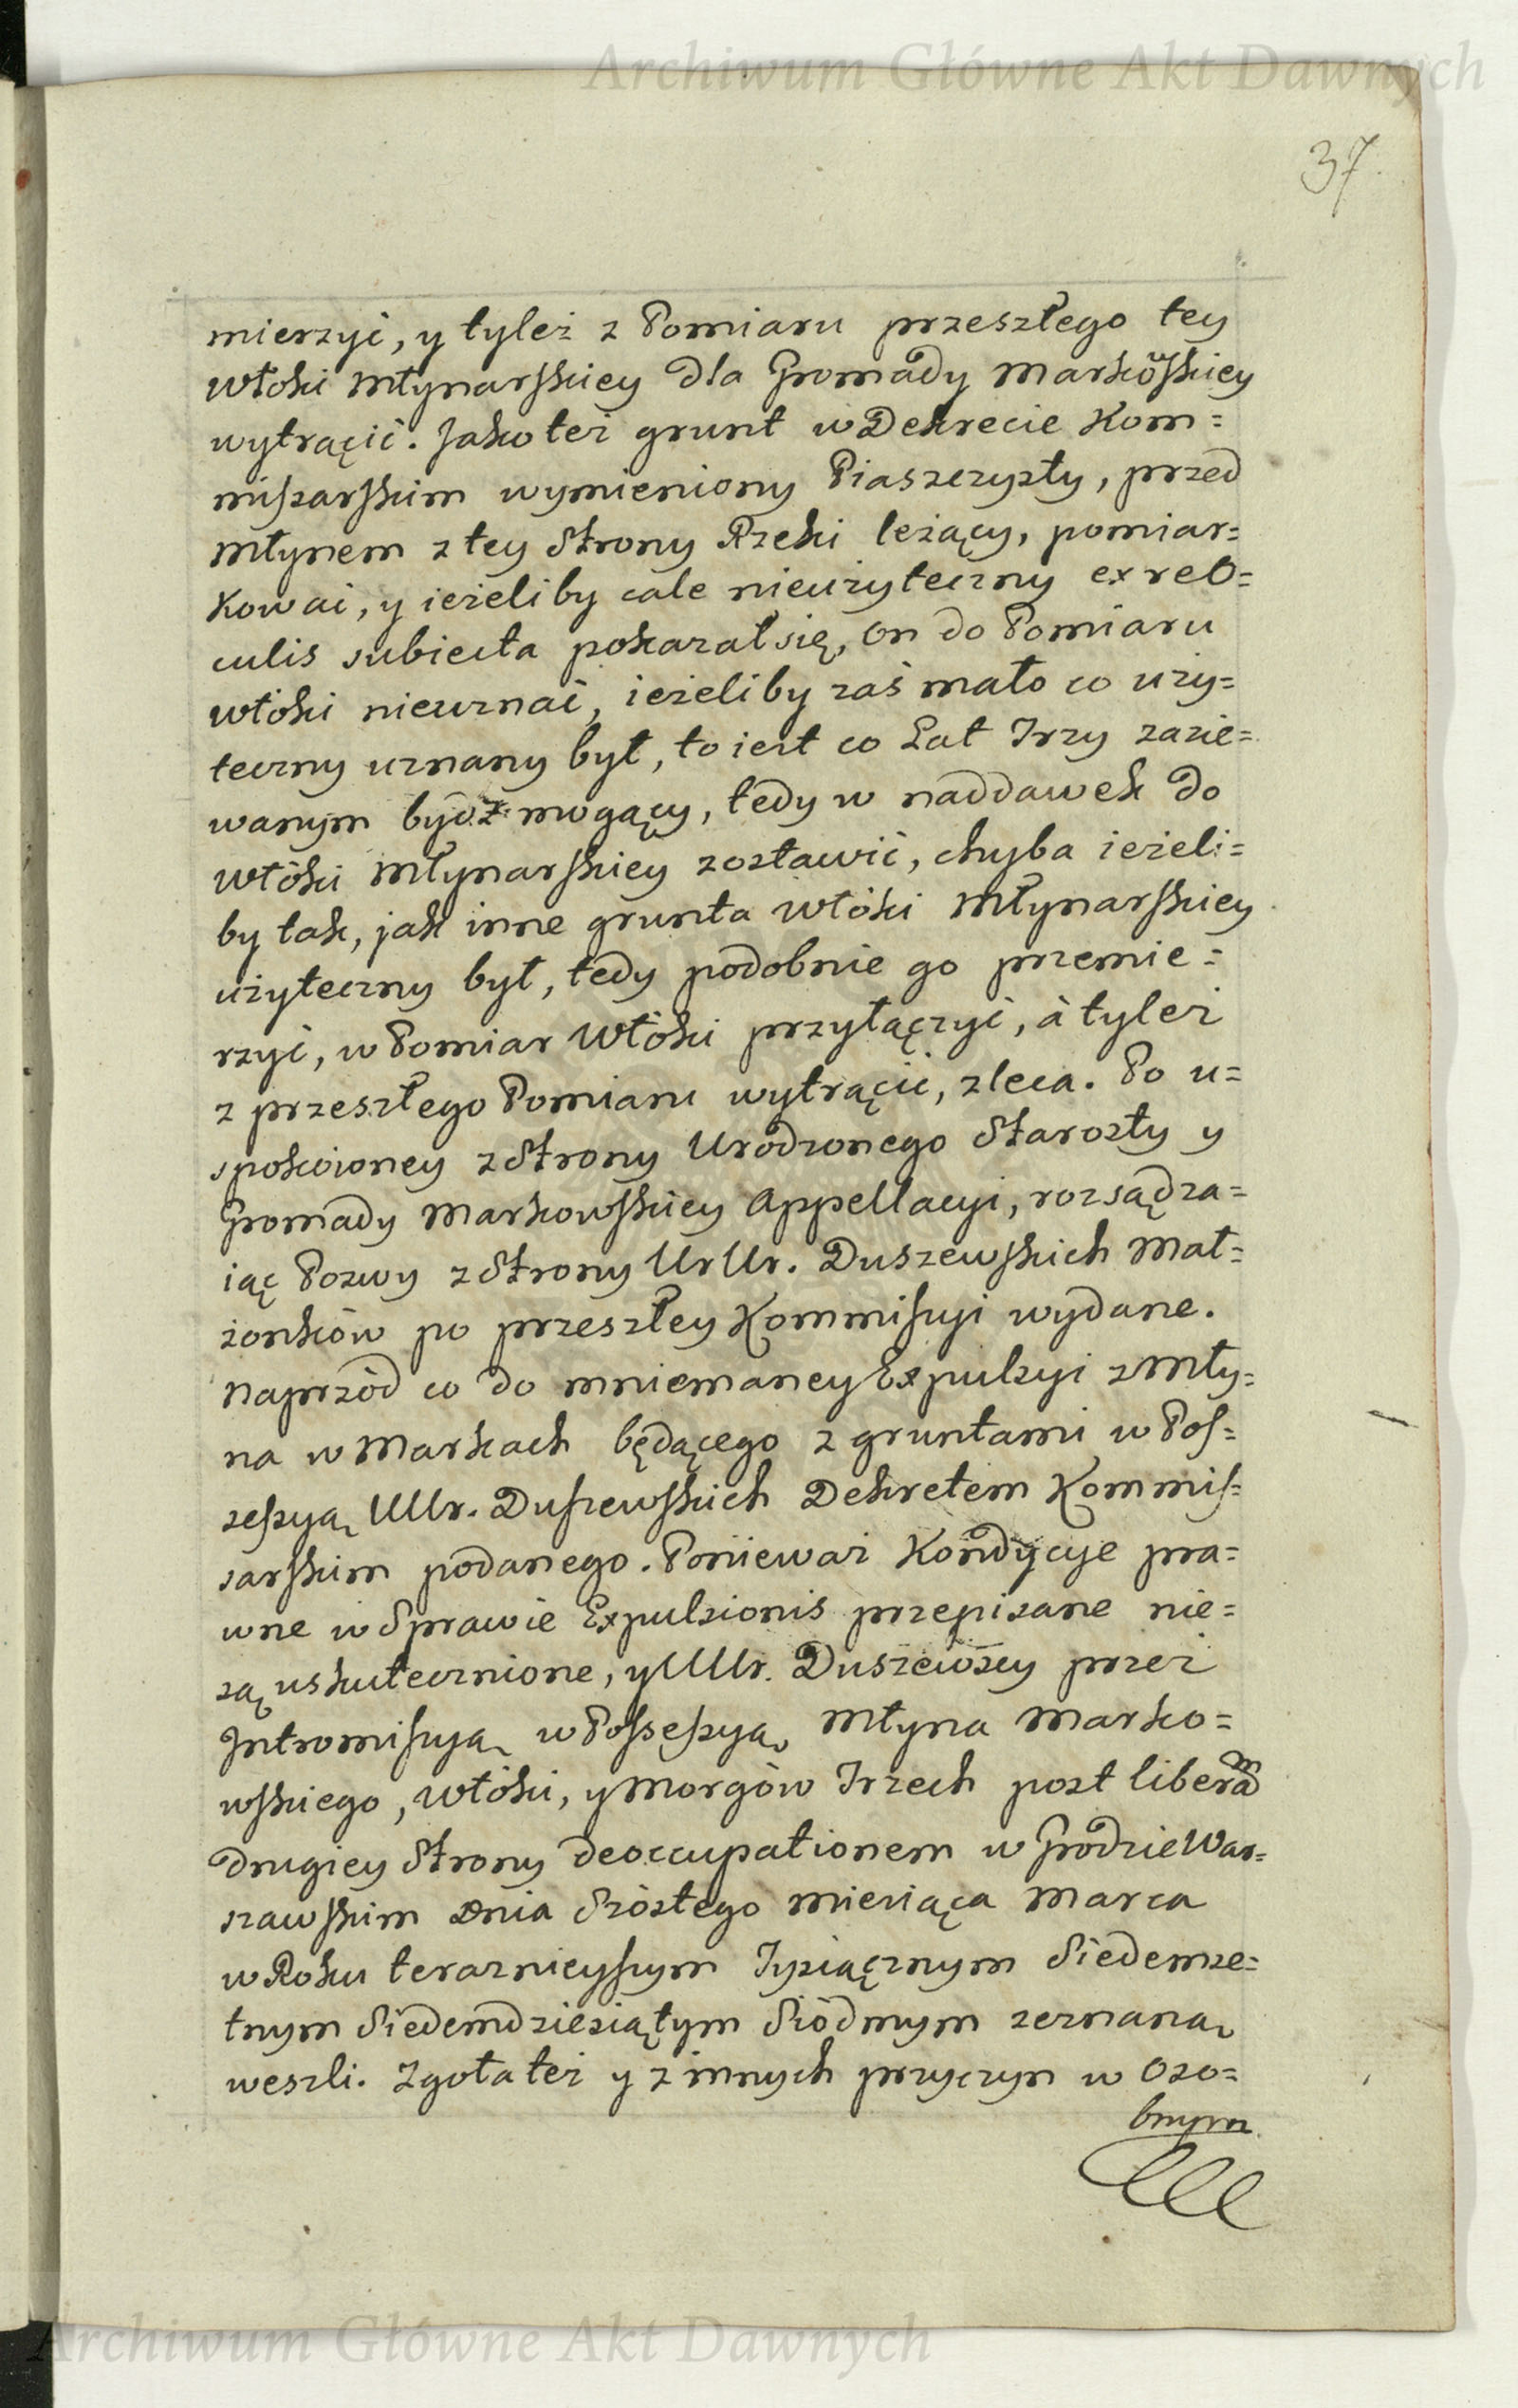 Archiwum Główne Akt Dawnych
37.
mierzyć, y tyleż z Pomiaru przeszłego tey
Włoki Młynarskiey dla Gromady Markowskiey
wytrącić. Jako też grunt w Dekrecie Kom=
missarskim wymieniony Piaszczysty, przed
Młynem z tey Strony Rzeki leżący, pomiar=
kować, y ieżeliby cale nieużyteczny ex reo=
culis subiecta pokazał się, on do Pomiaru
Włóki nieuznać, ieżeliby zaś mało co uży=
teczny uznany był, to iest co Lat Trzy zasie=
wanym bydź mogący, tedy w naddawek do
Włóki Młynarskiey zostawić, chyba ieżeli=
by tak, jak inne grunta Włóki Młynarskiey
użyteczny był, tedy podobnie go przemie=
rzyć, w Pomiar Włóki przyłączyć, à tyleż
z przeszłego Pomiaru wytrącić, zleca. Po u=
spokoioney z Strony Urodzonego Starosty y
Gromady Markowskiey Appellacyi, rozsądza=
iąc Pozwy z Strony Ur Ur. Duszewskich Mał=
żonków po przeszłey Kommissyi wydane.
Naprzód co do mniemaney Expulsyi z Mły=
na w Markach będącego z gruntami w Pos=
sessyą UUr. Duszewskich Dekretem Kommis=
sarskim podanego. Ponieważ Kondycye pra=
wne w Sprawie Expulsionis przepisane nie=
są uskutecznione, y UUr. Duszewscy przez
Intromissyą w Possessyą Młyna Marko=
wskiego, Włóki, y Morgów Trzech post liberam
drugiey Strony deoccupationem w Grodzie War=
szawskim Dnia Szóstego Miesiąca Marca
w Roku teraznieyszym Tysiącznym Siedemse=
tnym Siedemdziesiątym Siódmym zeznaną
weszli. Zgoła też y z innych przyczyn w Oso=
bnym
Archiwum Główne Akt Dawnych